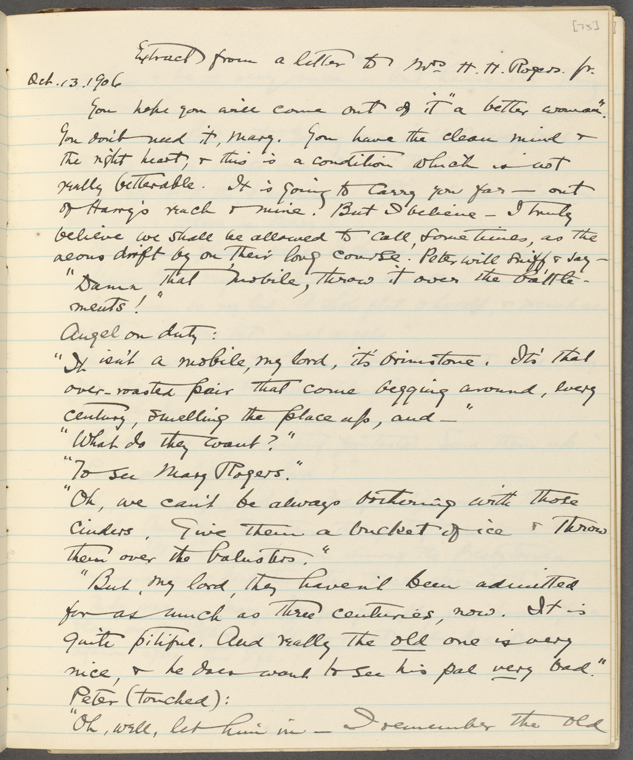 [75]
Extract from a letter to Mrs. H. H. Rogers, Jr.
Oct. 13. 1906
You hope you will come out of it "a better woman".
You don't need it, Mary. You have the clean mind &
the right heart, & this is a condition which is not
really betterable. It is going to carry you far — out
of Harry's reach & mine. But I believe — I truly
believe we shall be allowed to call, sometimes, as the
aeons drift by on their long course. Peter will sniff & say —
"Damn that mobile, throw it over the battle-
ments!"
Angel on duty:
"It isn't a mobile, my lord, it's brimstone. It's that
over-roasted pair that come begging around, every
century, smelling the place up, and —"
"What do they want?"
"To see Mary Rogers."
"Oh, we can't be always bothering with those
cinders. Give them a bucket of ice & throw
them over the balusters."
"But, my lord, they haven't been admitted
for as much as three centuries, now. It is
quite pitiful. And really the old one is very
nice, & he does want to see his pal very bad."
Peter (touched):
"Oh, well, let him in — I remember the old